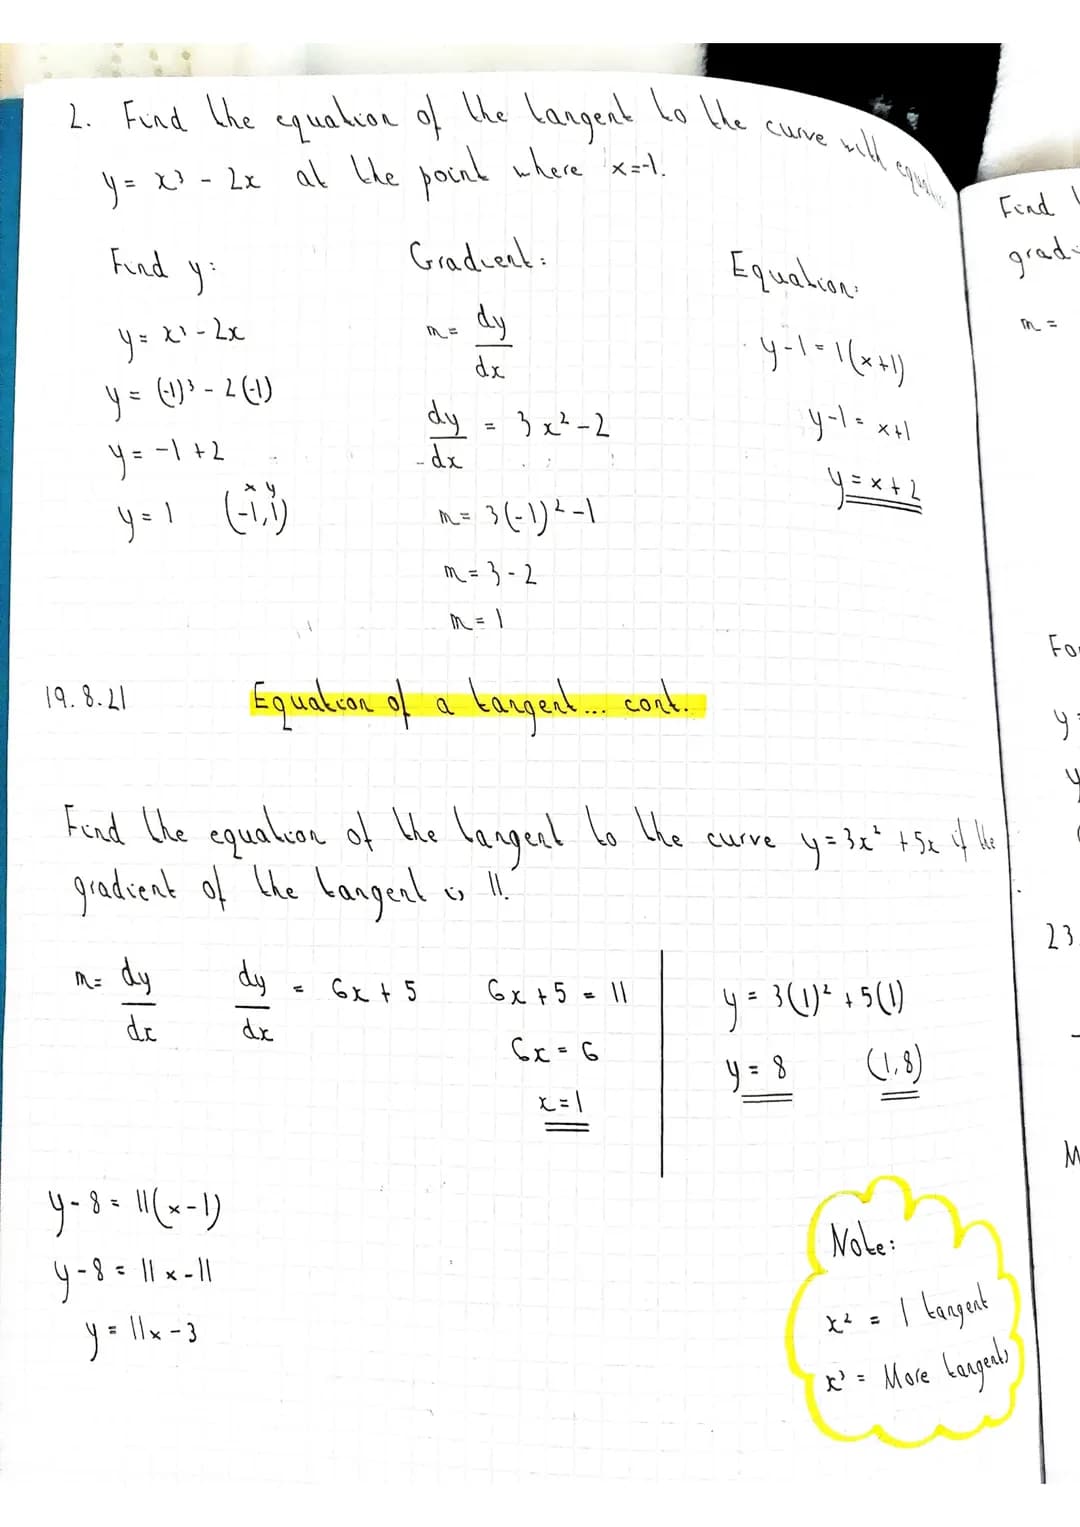 2. Find the equation of the tangent to the curve with
y = x³ - 2x at the point where x=-1.
Find y:
y = x³ - 2x
y = (-1)³ - 2(-1)
y = -1 + 2
x y
y = 1 (-1,1)
Gradient:
m = dy/dx
dy/dx = 3x² - 2
m = 3(-1)² - 1
m = 3 - 2
m = 1
Equation:
y - 1 = 1(x+1)
y - 1 = x+1
y = x + 2
19.8.21 Equation of a tangent... cont.
Find the equation of the tangent to the curve y = 3x² + 5x if the
gradient of the tangent is 11.
m = dy/dx dy/dx = 6x + 5
6x + 5 = 11
6x = 6
x = 1
y = 3(1)² + 5(1)
y = 8 (1,8)
y - 8 = 11(x - 1)
y - 8 = 11x - 11
y = 11x - 3
Note:
x² = 1 tangent
x³ = More tangents
Find
m =
y
23.
M